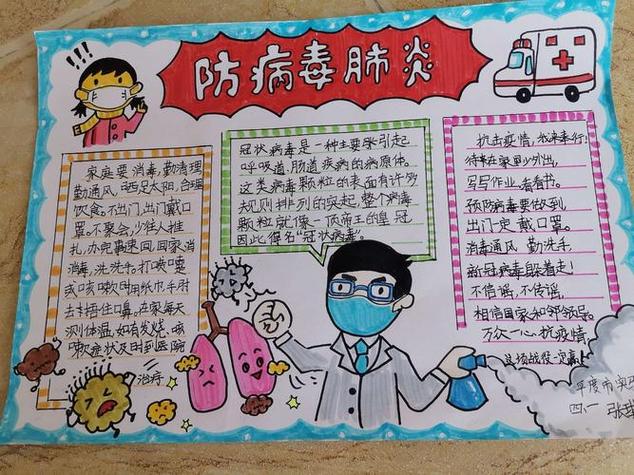 防病毒肺炎
!!!
家庭要消毒,勤清理
勤通风,晒足太阳,合理
饮食。不出门,出门戴口
罩。不聚会,少往人堆
扎,办完事速回,回家消
消毒,洗洗手。打喷嚏
或咳嗽时用纸巾,手肘
去捂住口鼻。在家每天
测体温,如有发烧、咳
嗽症状及时到医院
治疗
冠状病毒是一种主要引起
呼吸道、肠道疾病的病原体。
这类病毒颗粒的表面有许多
规则排列的突起,整个病毒
颗粒就像一顶帝王的皇冠
因此得名“冠状病毒”。
抗击疫情,我来奉行!
待在家里少外出,
写写作业,看看书。
预防病毒要做到,
出门一定戴口罩。
消毒通风勤洗手,
新冠病毒躲着走!
不信谣,不传谣,
相信国家和邻邻居。
万众一心抗疫情,
这场战役一定赢!
平度市实
四、一 张